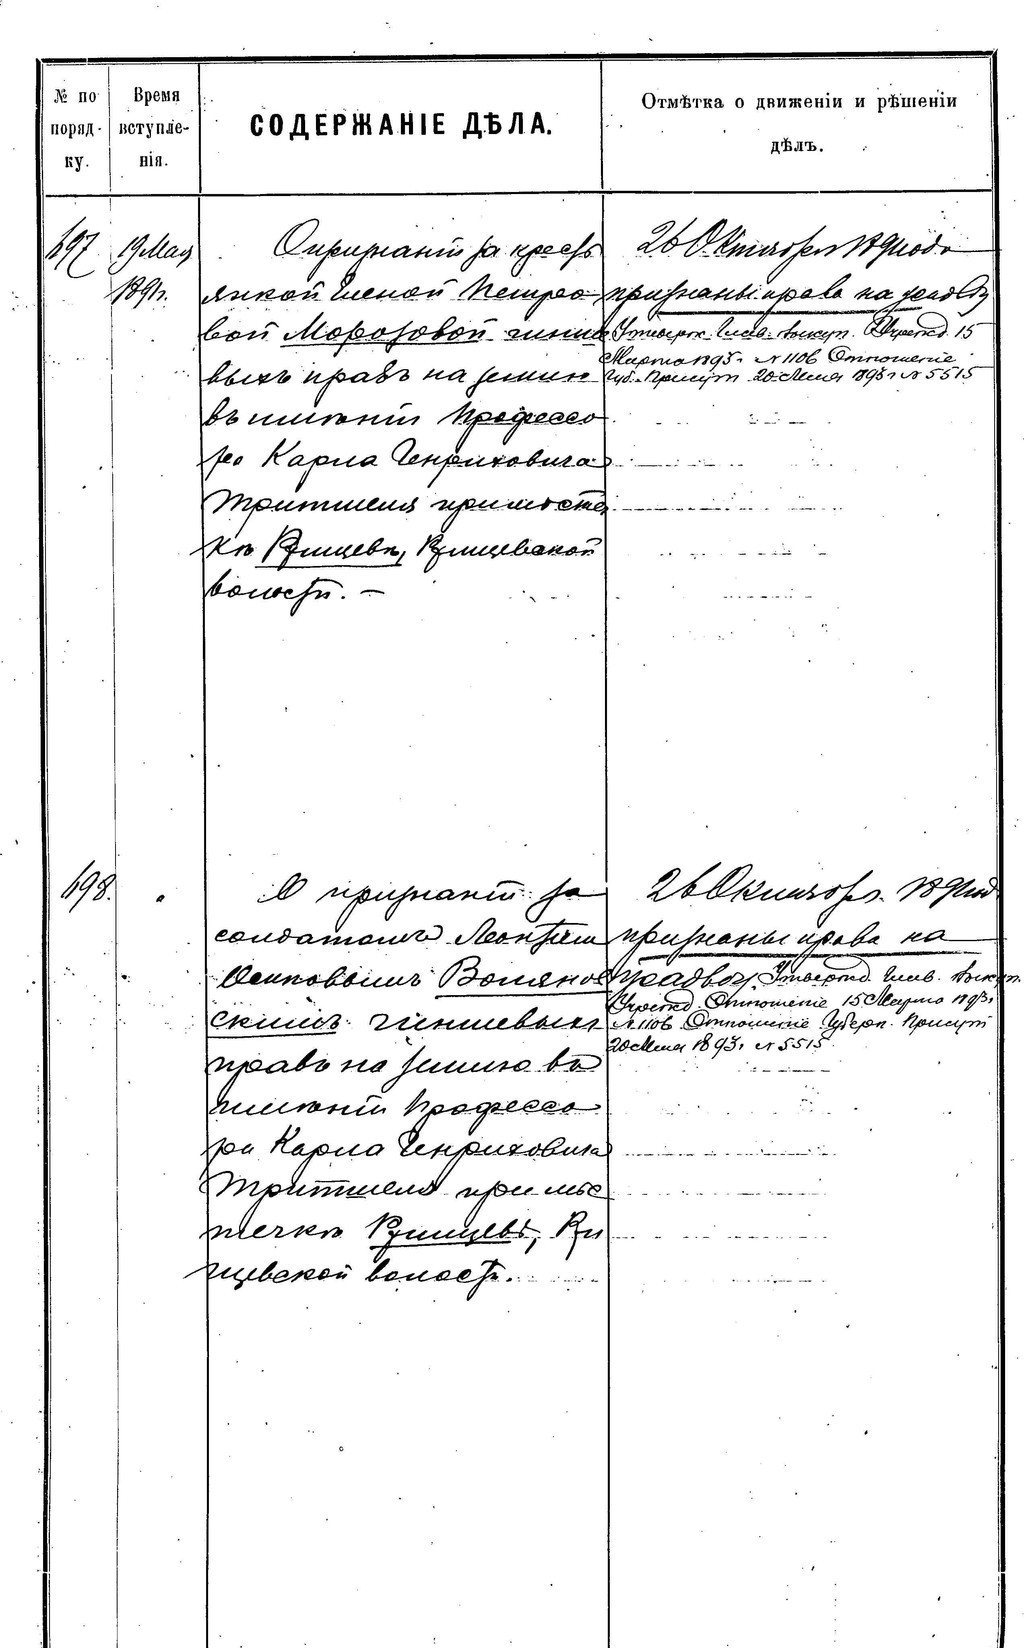 № по поряд-ку.
Время вступле-нія.
СОДЕРЖАНІЕ ДѢЛА.
Отмѣтка о движеніи и рѣшеніи дѣлъ.
697
19 Мая
1891 г.
О признаніи за кресть
янкой Еленой Петро
вой Морозовой чинше
выхъ правъ на землю
въ имѣніи Профессо
ра Карла Генриховича
Тритшеля при мѣстеч
кѣ Ржищевѣ, Ржищевской
волости. —
26 Октября 189 года
признаны права на
Утверж. Глав. Выкуп. Учрежд. 15
Марта 1893 г. № 1106 Отношеніе
Губ. Присут. 20 Мая 1893 г. № 5515
698.
"
О признаніи за
солдатомъ Леонтіем
Осиповымъ Волянов
скимъ чиншевыхъ
правъ на землю въ
имѣніи Профессо
ра Карла Генриховича
Тритшеля при мѣс
течкѣ Ржищевѣ, Ржи
щевской волости.
26 Октября 189 год
признаны права на
усадьбу Утвержд. Глав. Выкуп.
Учрежд. Отношеніе 15 Марта 1893 г.
№ 1106 Отношеніе Губерн. Присут
20 Мая 1893 г. № 5515